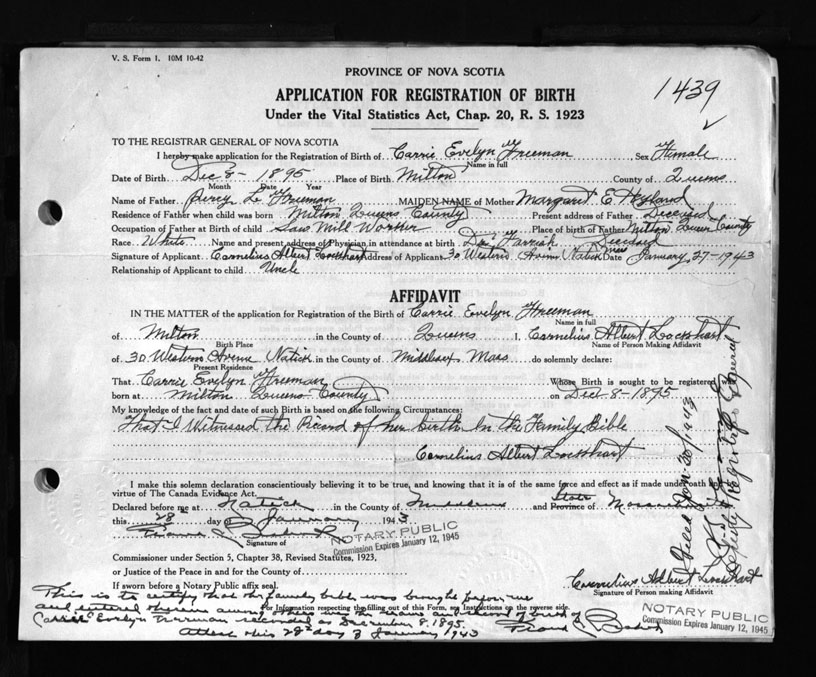 V. S. Form 1. 10M 10-42
PROVINCE OF NOVA SCOTIA
1439
APPLICATION FOR REGISTRATION OF BIRTH
Under the Vital Statistics Act, Chap. 20, R. S. 1923
TO THE REGISTRAR GENERAL OF NOVA SCOTIA
I hereby make application for the Registration of Birth of Carrie Evelyn Freeman, Sex Female
Name in full
Date of Birth Dec 8 - 1895 Place of Birth Milton County of Queens
Month Date Year
Name of Father Percy L Freeman MAIDEN NAME of Mother Margaret E
Residence of Father when child was born Milton Queens County Present address of Father Deceased
Occupation of Father at Birth of child Saw Mill Worker Place of birth of Father Milton Queens County
Race White Name and present address of Physician in attendance at birth Farrish
Signature of Applicant Cornelius Albert Lockhart Address of Applicant 30 Western Avenue Natick Mass Date January 27-1943
Relationship of Applicant to child Uncle
AFFIDAVIT
IN THE MATTER of the application for Registration of the Birth of Carrie Evelyn Freeman
Name in full
of Milton in the County of Queens I, Cornelius Albert Lockhart
Birth Place Name of Person Making Affidavit
of 30 Western Avenue Natick in the County of Middlesex Mass do solemnly declare:
Present Residence
That Carrie Evelyn Freeman Whose Birth is sought to be registered
born at Milton Queens County on Dec-8-1895
My knowledge of the fact and date of such Birth is based on the following Circumstances:
That I Witnessed the Record of her birth In the Family Bible
Cornelius Albert Lockhart
I make this solemn declaration conscientiously believing it to be true, and knowing that it is of the same force and effect as if made under oath and
virtue of The Canada Evidence Act.
Declared before me at Natick in the County of Middlesex and State Province of
this 28 day of January 1943
Signature of
NOTARY PUBLIC
Commission Expires January 12, 1945
Commissioner under Section 5, Chapter 38, Revised Statutes, 1923,
or Justice of the Peace in and for the County of
If sworn before a Notary Public affix seal.
Cornelius Albert Lockhart
Signature of Person Making Affidavit
For Information respecting the filling out of this Form, see Instructions on the reverse side.
This is to certify that the family bible was brought before me
and entered therein among others was the name and record of birth of
Carrie Evelyn Freeman recorded as December 8, 1895.
Attest this 28th day of January 1943
NOTARY PUBLIC
Commission Expires January 12, 1945
Filed Jan 30/1943
Deputy Registrar General